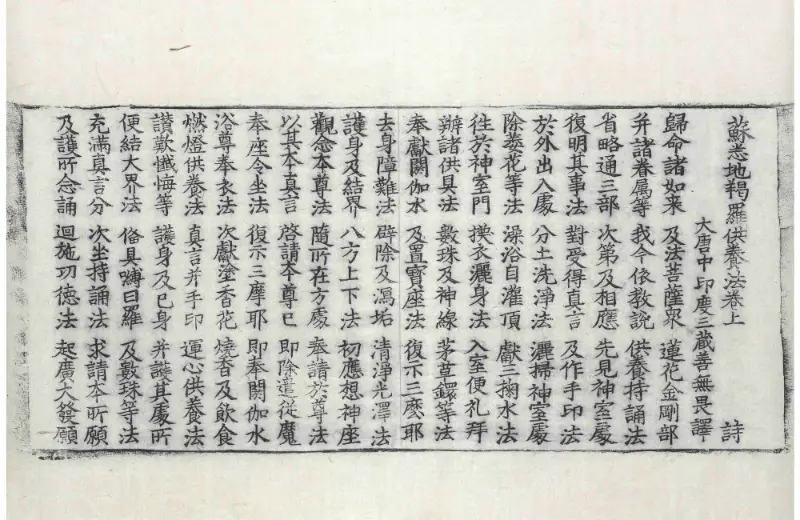 蘇悉地羯羅供養法卷上 詩
大唐中印度三蔵善無畏譯
歸命諸如来 及法菩薩衆 蓮花金剛部
并諸眷属等 我今依教說 供養持誦法
省略通三部 次第及相應 先見神室處
復明其事法 對受得真言 及作手印法
於外出入處 分土洗淨法 灑掃神室處
除萎花等法 澡浴自灌頂 獻三掬水法
徃於神室門 換衣灑身法 入室便礼拜
辦諸供具法 數珠及神線 茅草鐶等法
奉獻閼伽水 及置寳座法 復示三麽耶
去身障難法 辟除及濁垢 清淨光澤法
護身及結界 八方上下法 初應想神座
觀念本尊法 隨所在方處 奉請於尊法
以其本真言 啓請本尊已 即除遣従魔
奉座令坐法 復示三摩耶 即奉閼伽水
浴尊奉衣法 次獻塗香花 燒香及飲食
燃燈供養法 真言并手印 運心供養法
讃歎懺悔等 護身及己身 并護其處所
便結大界法 俻具嚩日羅 及數珠等法
充滿真言分 次坐持誦法 求請本所願
及護所念誦 迴施功徳法 起廣大發願